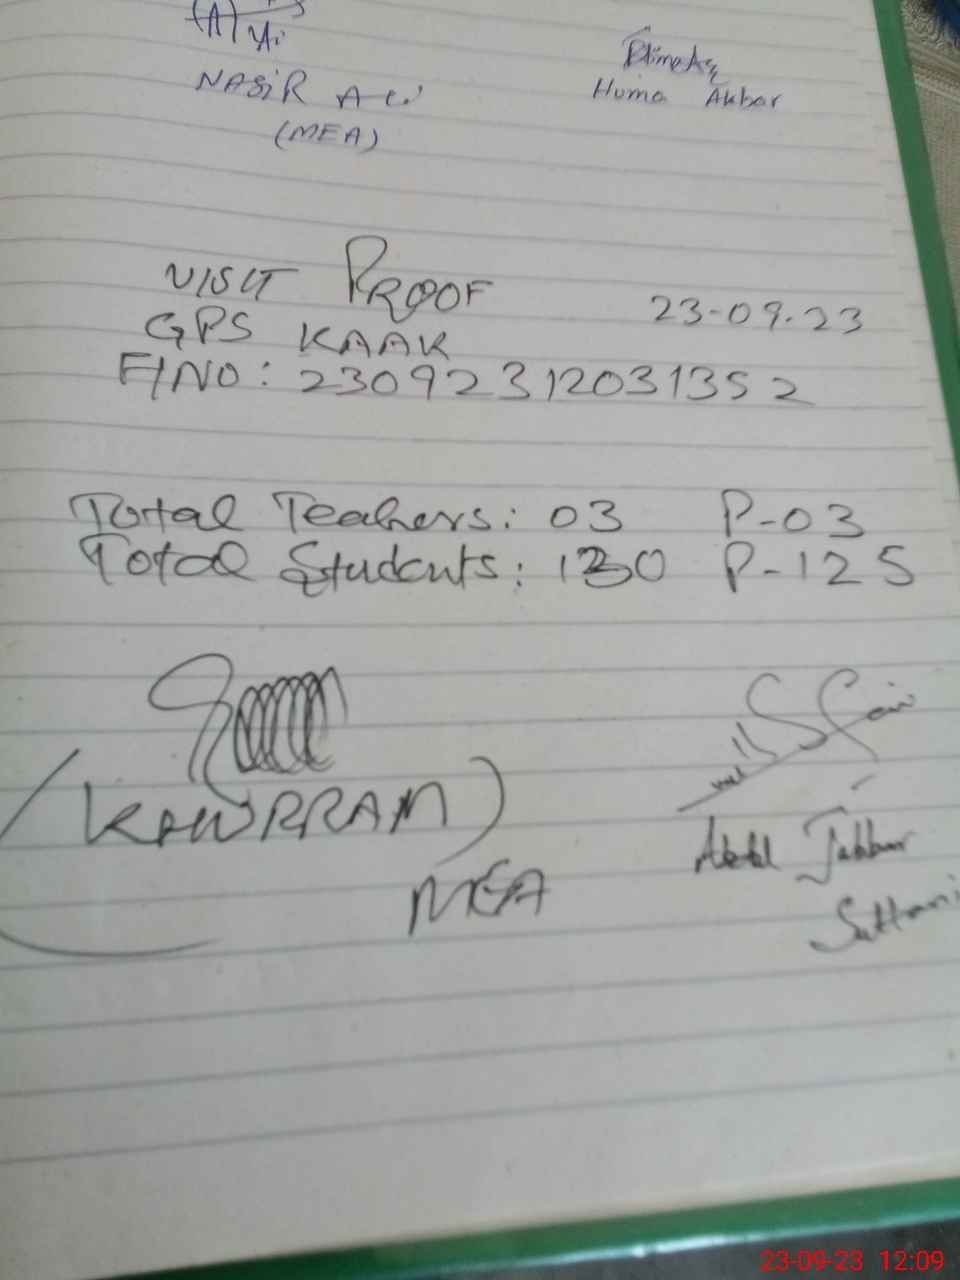 NASIR ALI
(MEA)
Huma Akbar
VISIT PROOF
23-09-23
GPS KAAK
F/NO: 23092312031352
Total Teachers: 03 P-03
Total Students: 130 P-125
(KAWRRAM)
MEA
Abdul Jabbar
23-09-23 12:09